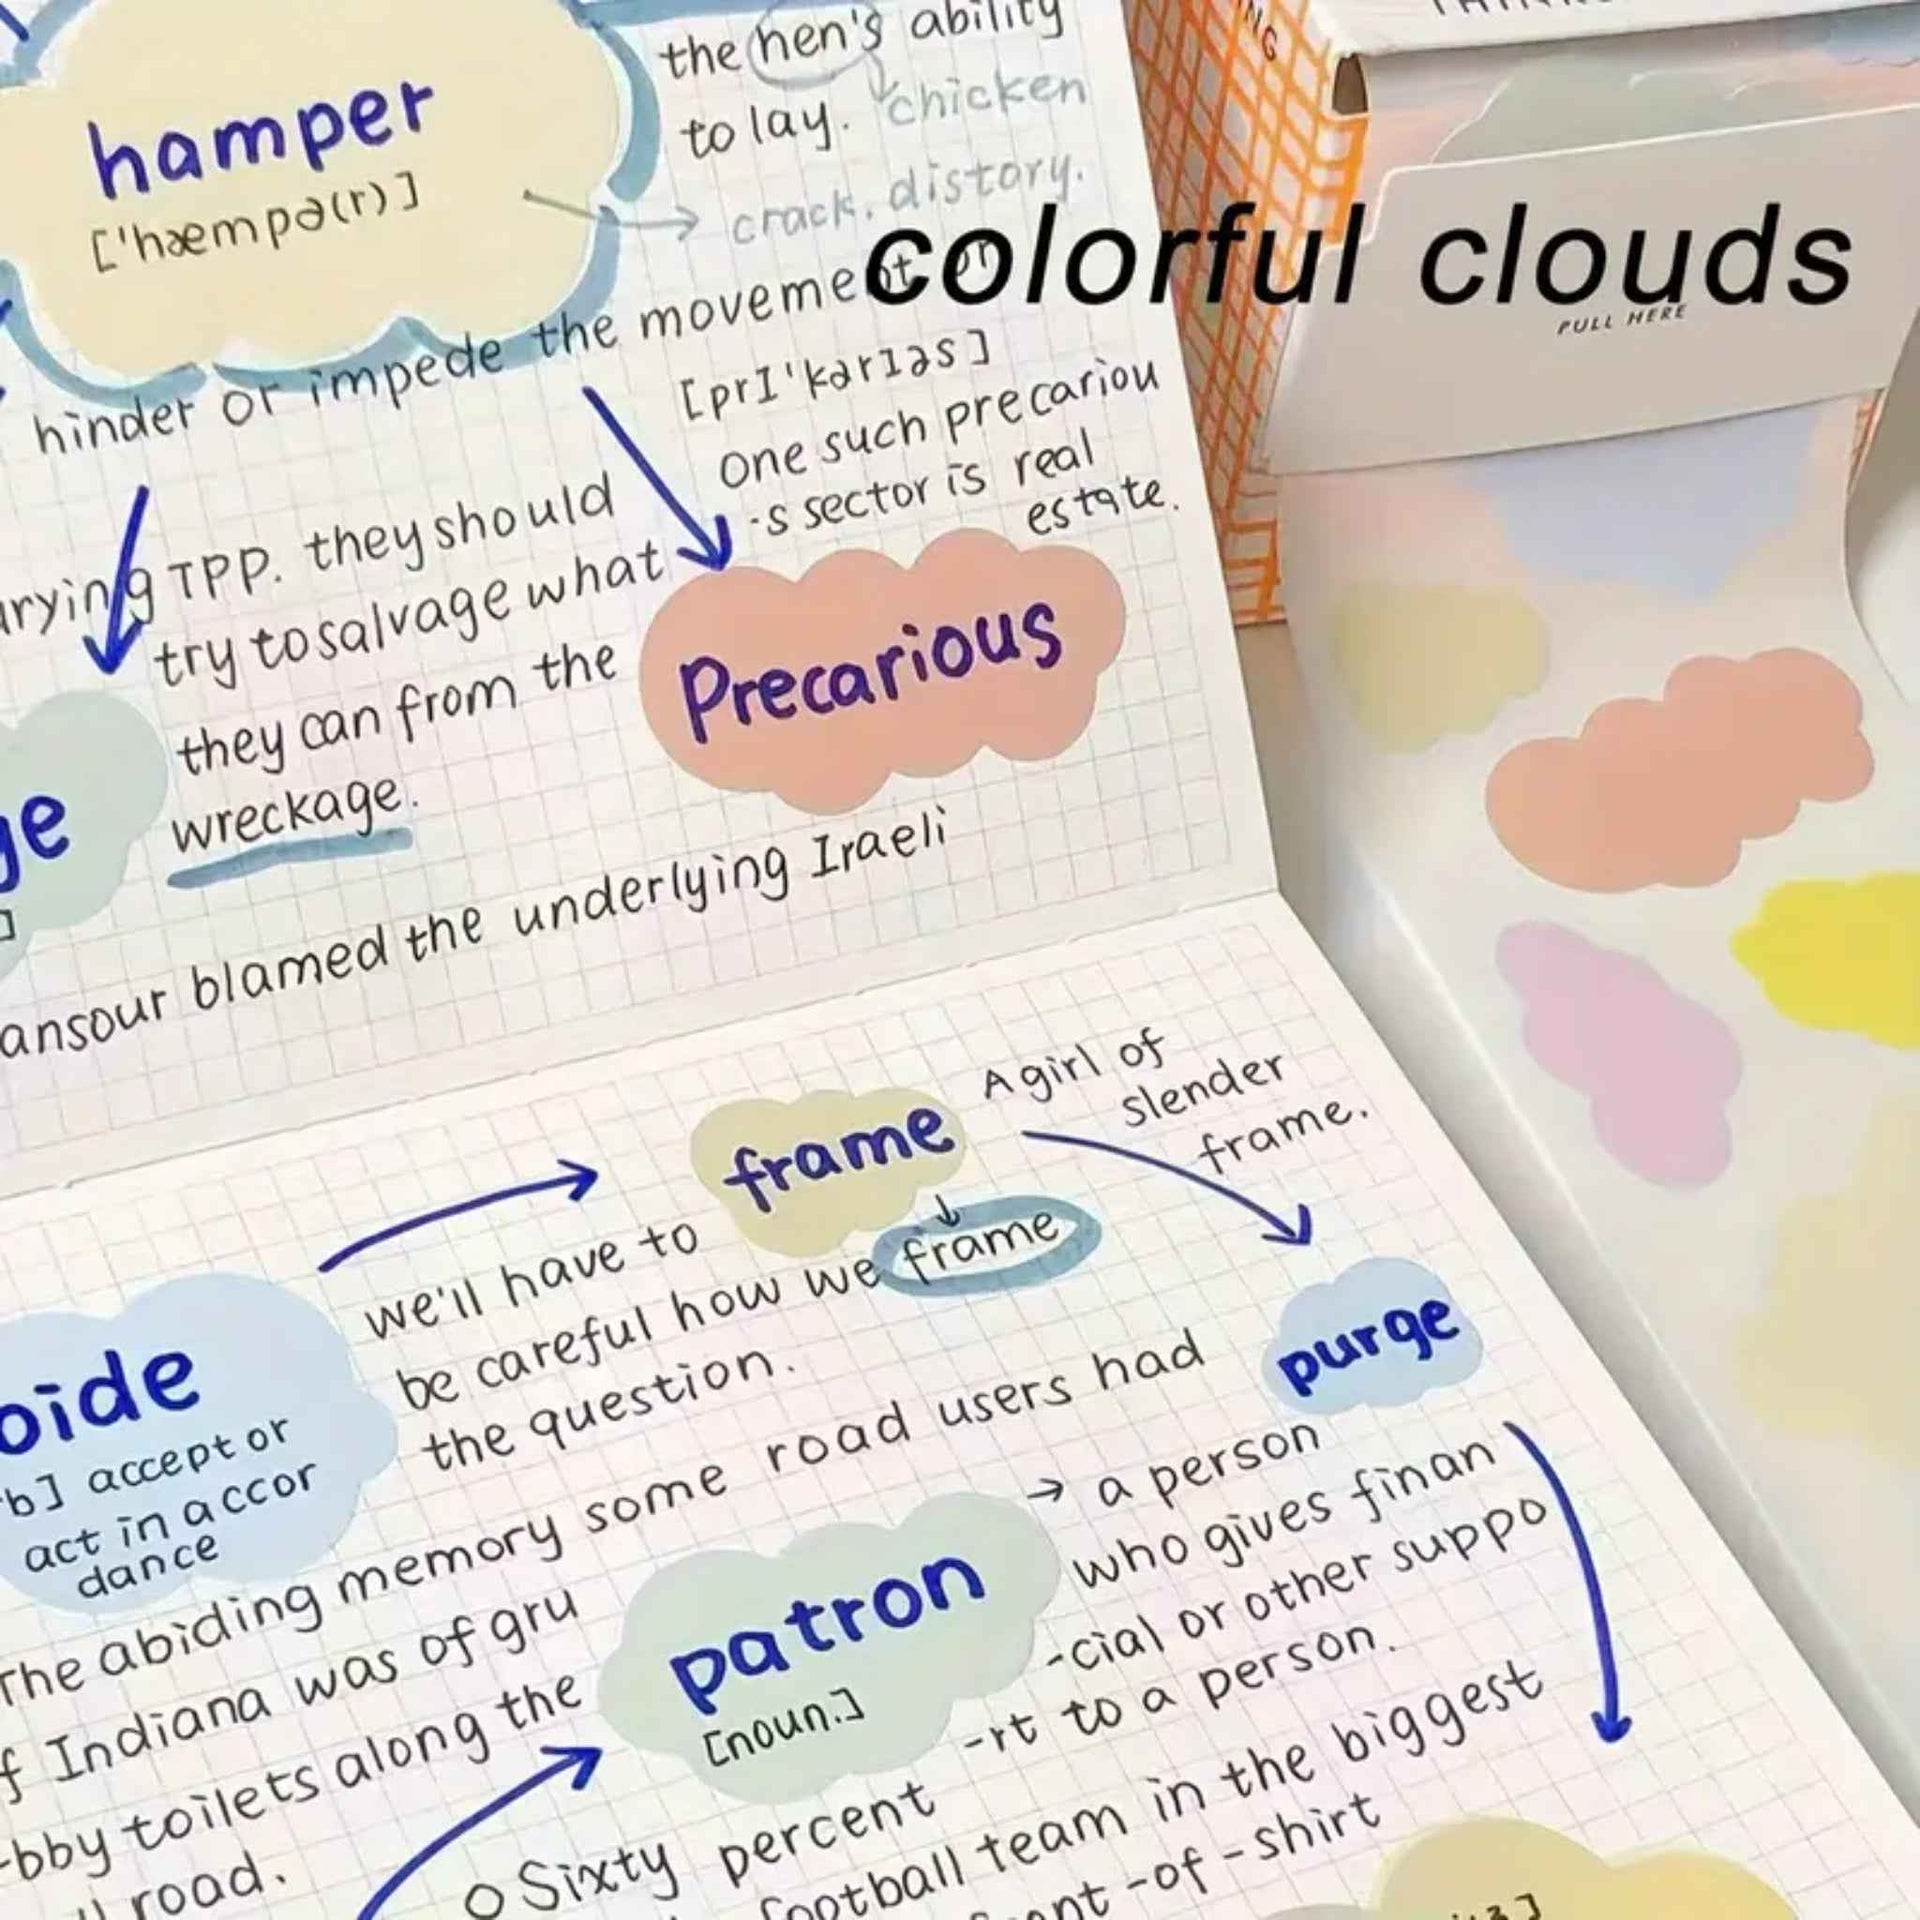 the hen's ability
to lay. chicken
hamper
['hæmpə(r)]
crack. distory.
colorful clouds
PULL HERE
hinder or impede the movement or
[prI'kərIəs]
one such precariou
-s sector is real
estate.
TPP. they should
try to salvage what
they can from the
wreckage.
Precarious
ansour blamed the underlying Iraeli
frame
A girl of
slender
frame.
we'll have to
be careful how we frame
the question.
purge
accept or
act in accor
dance
The abiding memory some road users had
f Indiana was of gru
-bby toilets along the
road.
patron
[noun.]
→ a person
who gives finan
-cial or other suppo
-rt to a person.
Sixty percent
football team in the biggest
-of-shirt